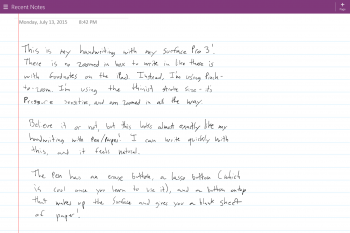 Recent Notes
Page
Monday, July 13, 2015 8:42 PM
This is my handwriting with my Surface Pro 3!
There is no zoomed in box to write in like there is
with footnotes on the iPad. Instead, I'm using Pinch-
to-zoom. I'm using the thinnest stroke since its
Pressure sensitive, and am zoomed in all the way.
Believe it or not, but this looks almost exactly like my
handwriting with Pen/Paper! I can write quickly with
this, and it feels natural.
The Pen has an erase button, a lasso button (which
is cool once you learn to use it), and a button on top
that wakes up the Surface and gives you a blank sheet
of paper!